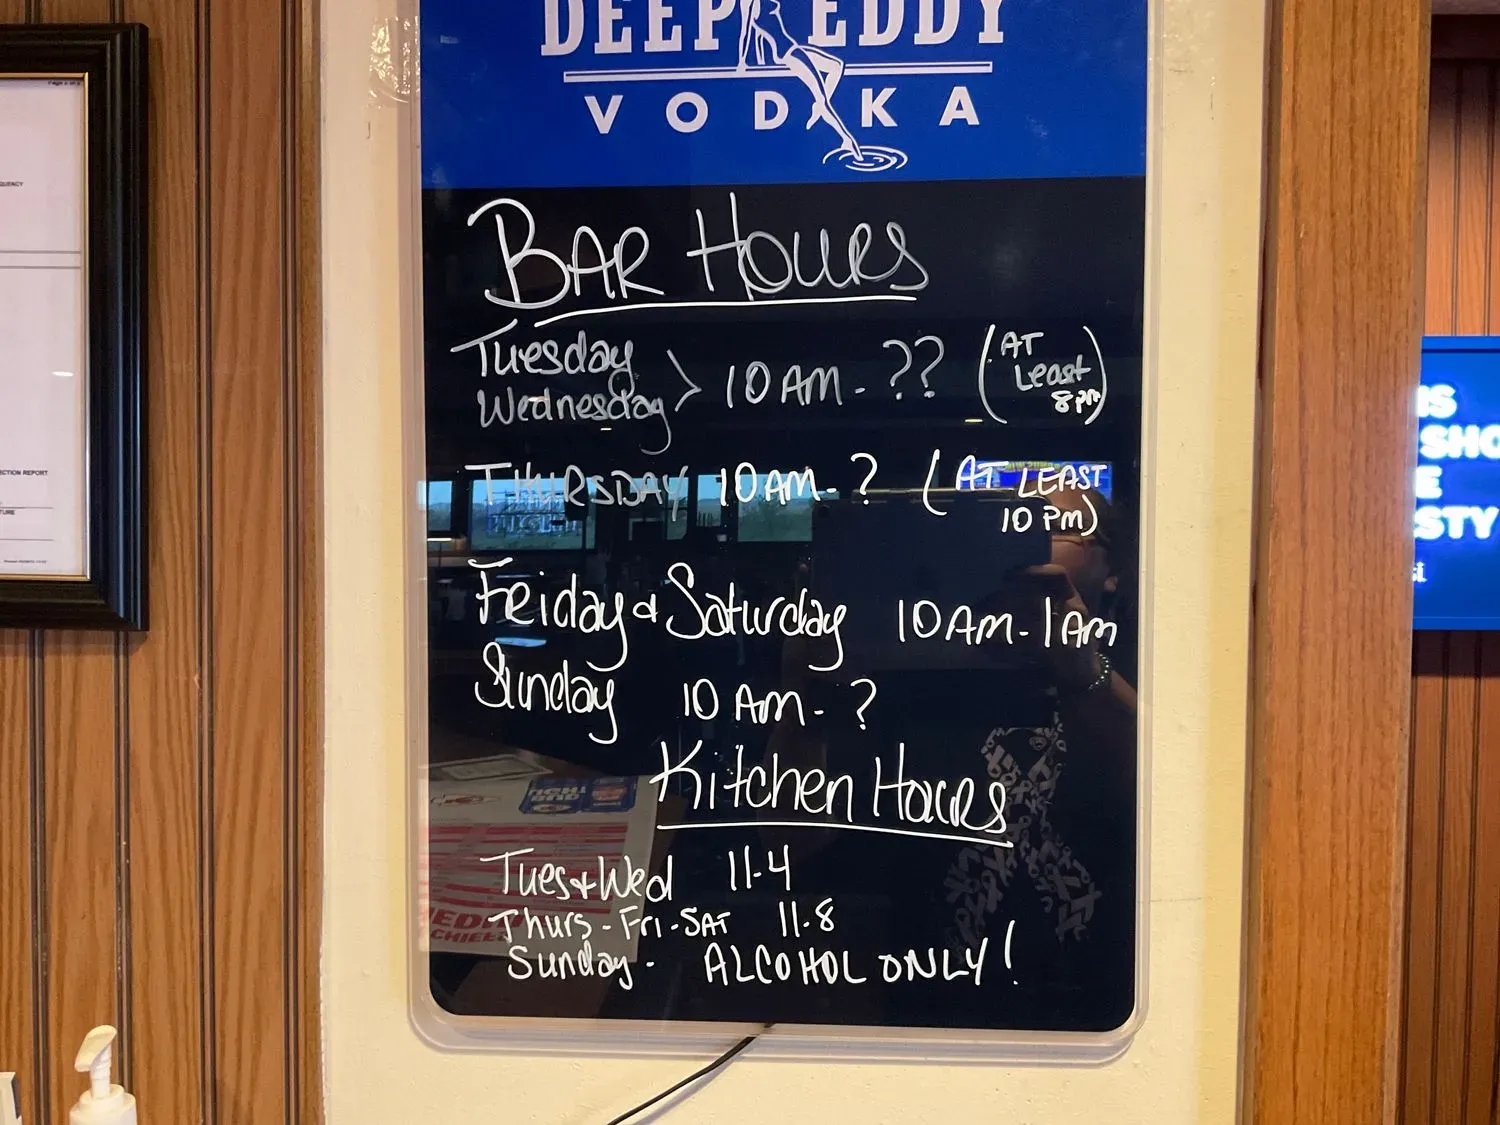 DEEP EDDY
VODKA
BAR HOURS
Tuesday
Wednesday > 10 AM - ?? (AT
Least
8pm)
THURSDAY 10 AM - ? (AT LEAST
10 PM)
Friday & Saturday 10 AM - 1 AM
Sunday 10 AM - ?
Kitchen Hours
Tues + Wed 11-4
Thurs - Fri - SAT 11-8
Sunday - ALCOHOL ONLY!
ECTION REPORT
SHO
E
STY